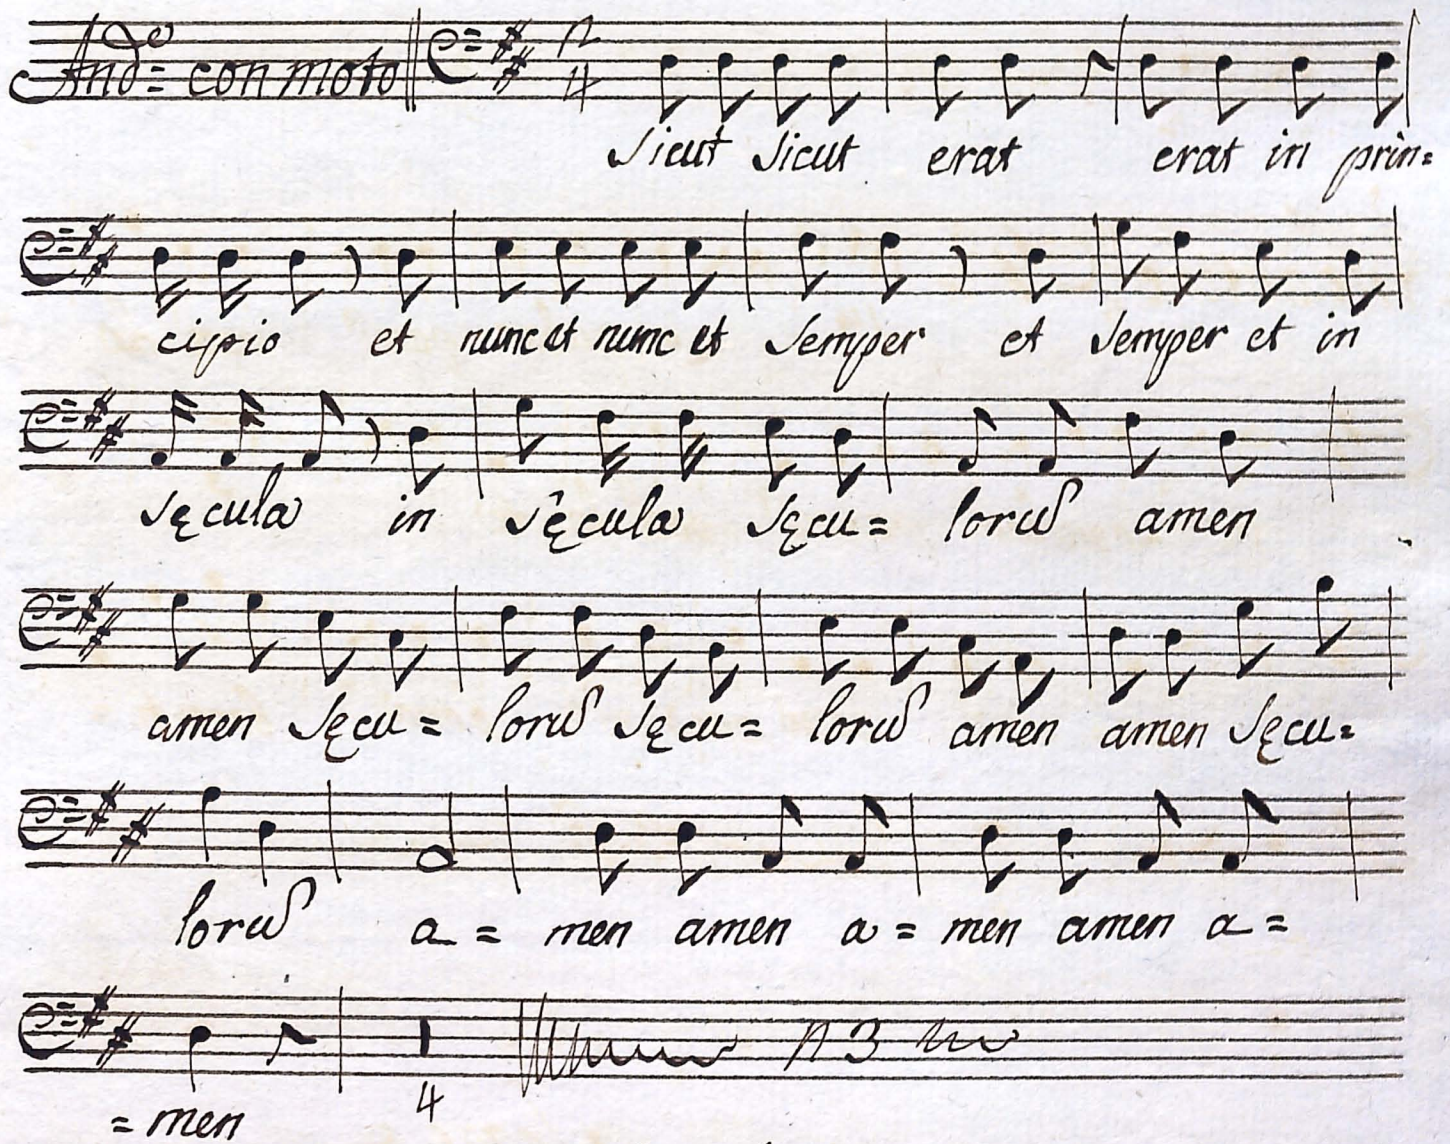 And.e = con moto 2 4
Sicut Sicut erat erat in prin=
cipio et nunc et nunc et Semper et Semper et in
sęcula in sęcula sęcu= lorũ amen
amen sęcu= lorũ sęcu= lorũ amen amen sęcu=
lorũ a= men amen a= men amen a=
n 3
4
=men